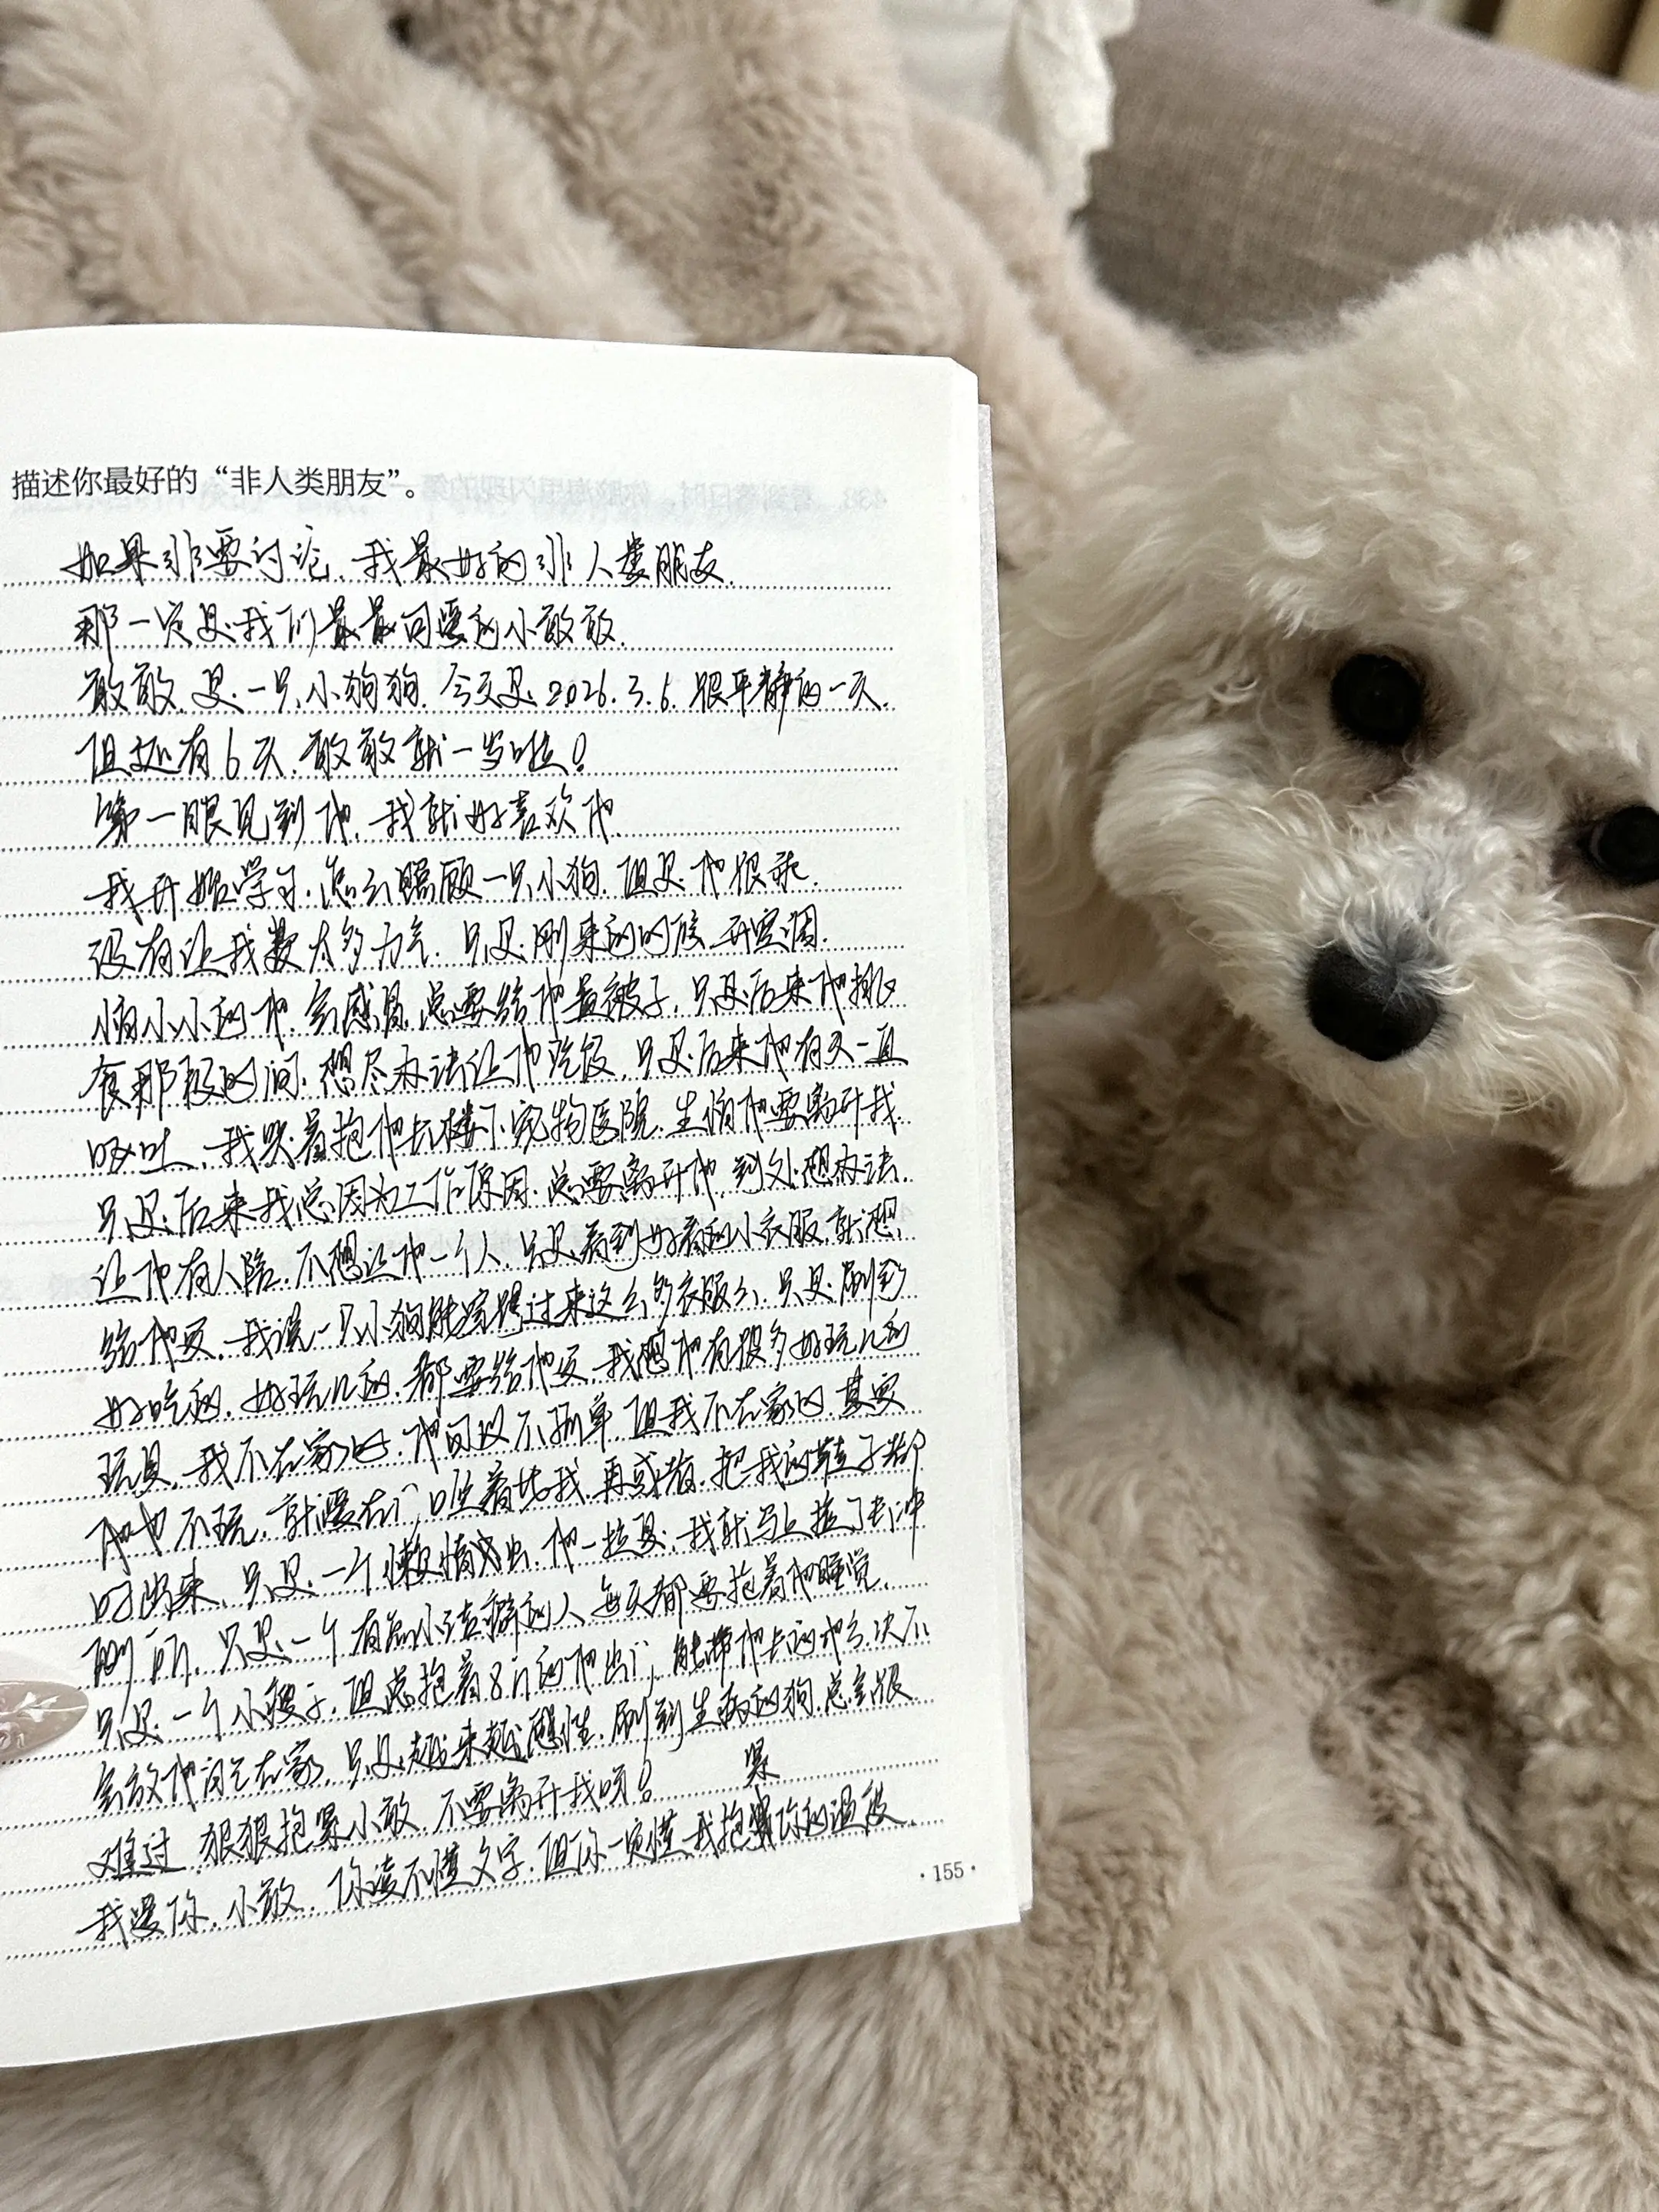 描述你最好的“非人类朋友”。
如果非要讨论，我最好的非人类朋友，
那一定是我们最最可爱的小敢敢。
敢敢，是一只小狗狗，今天是2026.3.6，很平静的一天，
但还有6天，敢敢就一岁啦！
第一眼见到他，我就好喜欢他，
我开始学习，怎么照顾一只小狗，但是他很乖，
没有让我费太多力气，只是刚来的时候，开空调，
怕小小的他，会感冒，总要给他盖被子，只是后来他挑
食那段时间，想尽办法让他吃饭，只是后来他有天一直
呕吐，我哭着抱他去楼下宠物医院，生怕他要离开我，
只是后来我总因为工作原因，总要离开他，到处想办法，
让他有人陪，不想让他一个人，只是看到好看的小衣服，就想
给他买，我说一只小狗能穿得过来这么多衣服么，只是刷到
好吃的，好玩儿的，都要给他买，我想他有很多好玩儿的
玩具，我不在家时，他可以不孤单，但我不在家时，其实
他也不玩，就要在门口坐着等我，再或者，把我的鞋子都
叼出来，只是，一个懒惰的，他一拉臭，我就马上捡了去冲
厕所，只是一个有点小洁癖的人，每天都要抱着他睡觉，
只是一个小瘦子，但总抱着8斤的他出门，能带他去的地方决不
会放他闷气在家，只是越来越感性，刷到生病的狗，总会很
难过，狠狠抱紧小敢，不要离开我呀！
紧
我爱你，小敢，你读不懂文字，但你一定懂我抱你的温度。
·155·